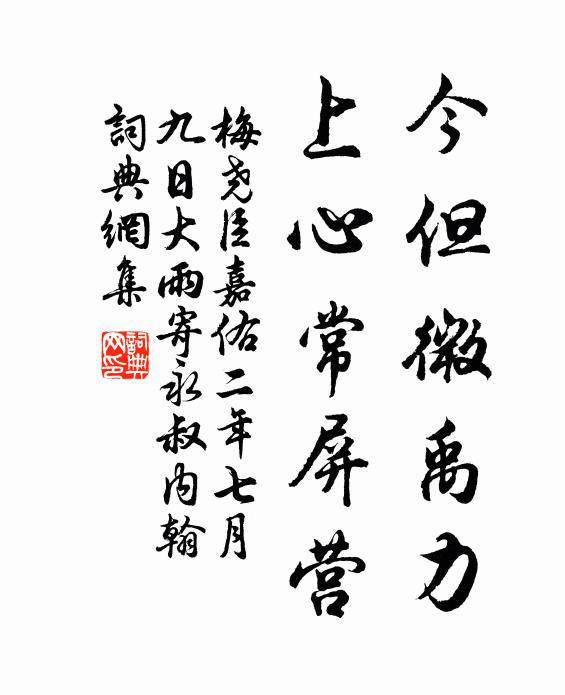 今但微禹力
上心常屏营
梅尧臣嘉佑二年七月
九日大雨寄永叔内翰
詞典網集
詞典网印